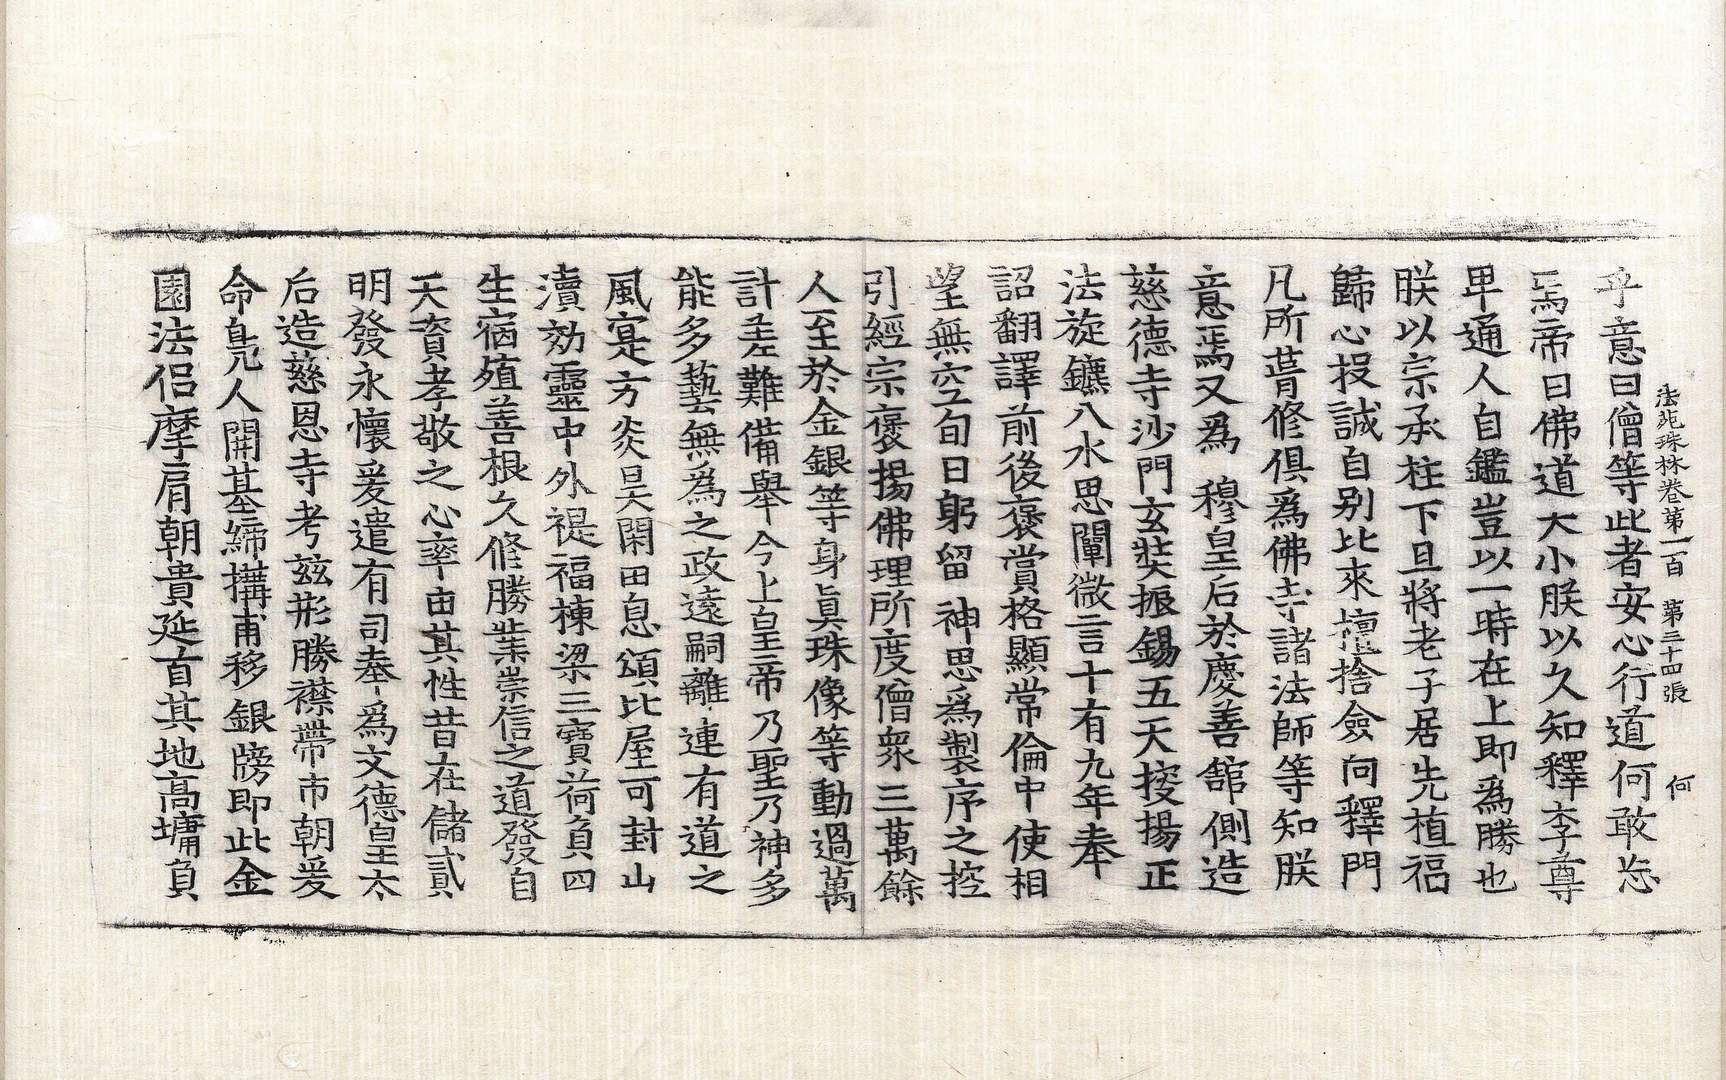 法苑珠林卷第一百　第三十四張　何
乎意曰僧等此者安心行道何敢忘
焉帝曰佛道大小朕以久知釋李尊
卑通人自鑑豈以一時在上即為勝也
朕以宗承柱下且將老子居先植福
歸心投誠自別比來檀捨僉向釋門
凡所葺修俱為佛寺諸法師等知朕
意焉又為　穆皇后於慶善舘側造
慈德寺沙門玄奘振錫五天挍揚正
法旋鑣八水思闡微言十有九年奉
詔翻譯前後褒賞格顯常倫中使相
望無空旬日躬留　神思為製序之控
引經宗褒揚佛理所度僧衆三萬餘
人至於金銀等身眞珠像等動過萬
計差難備舉今上皇帝乃聖乃神多
能多藝無為之政遠嗣離連有道之
風寔方炎昊閑田息頌比屋可封山
瀆効靈中外禔福棟梁三寶荷負四
生宿殖善根久修勝業崇信之道發自
天賚孝敬之心率由其性昔在儲貳
明發永懷爰遣有司奉為文德皇太
后造慈恩寺考茲形勝襟帶市朝爰
命凫人開基締構甫移銀牓即此金
園法侶摩肩朝貴延首其地高墉負